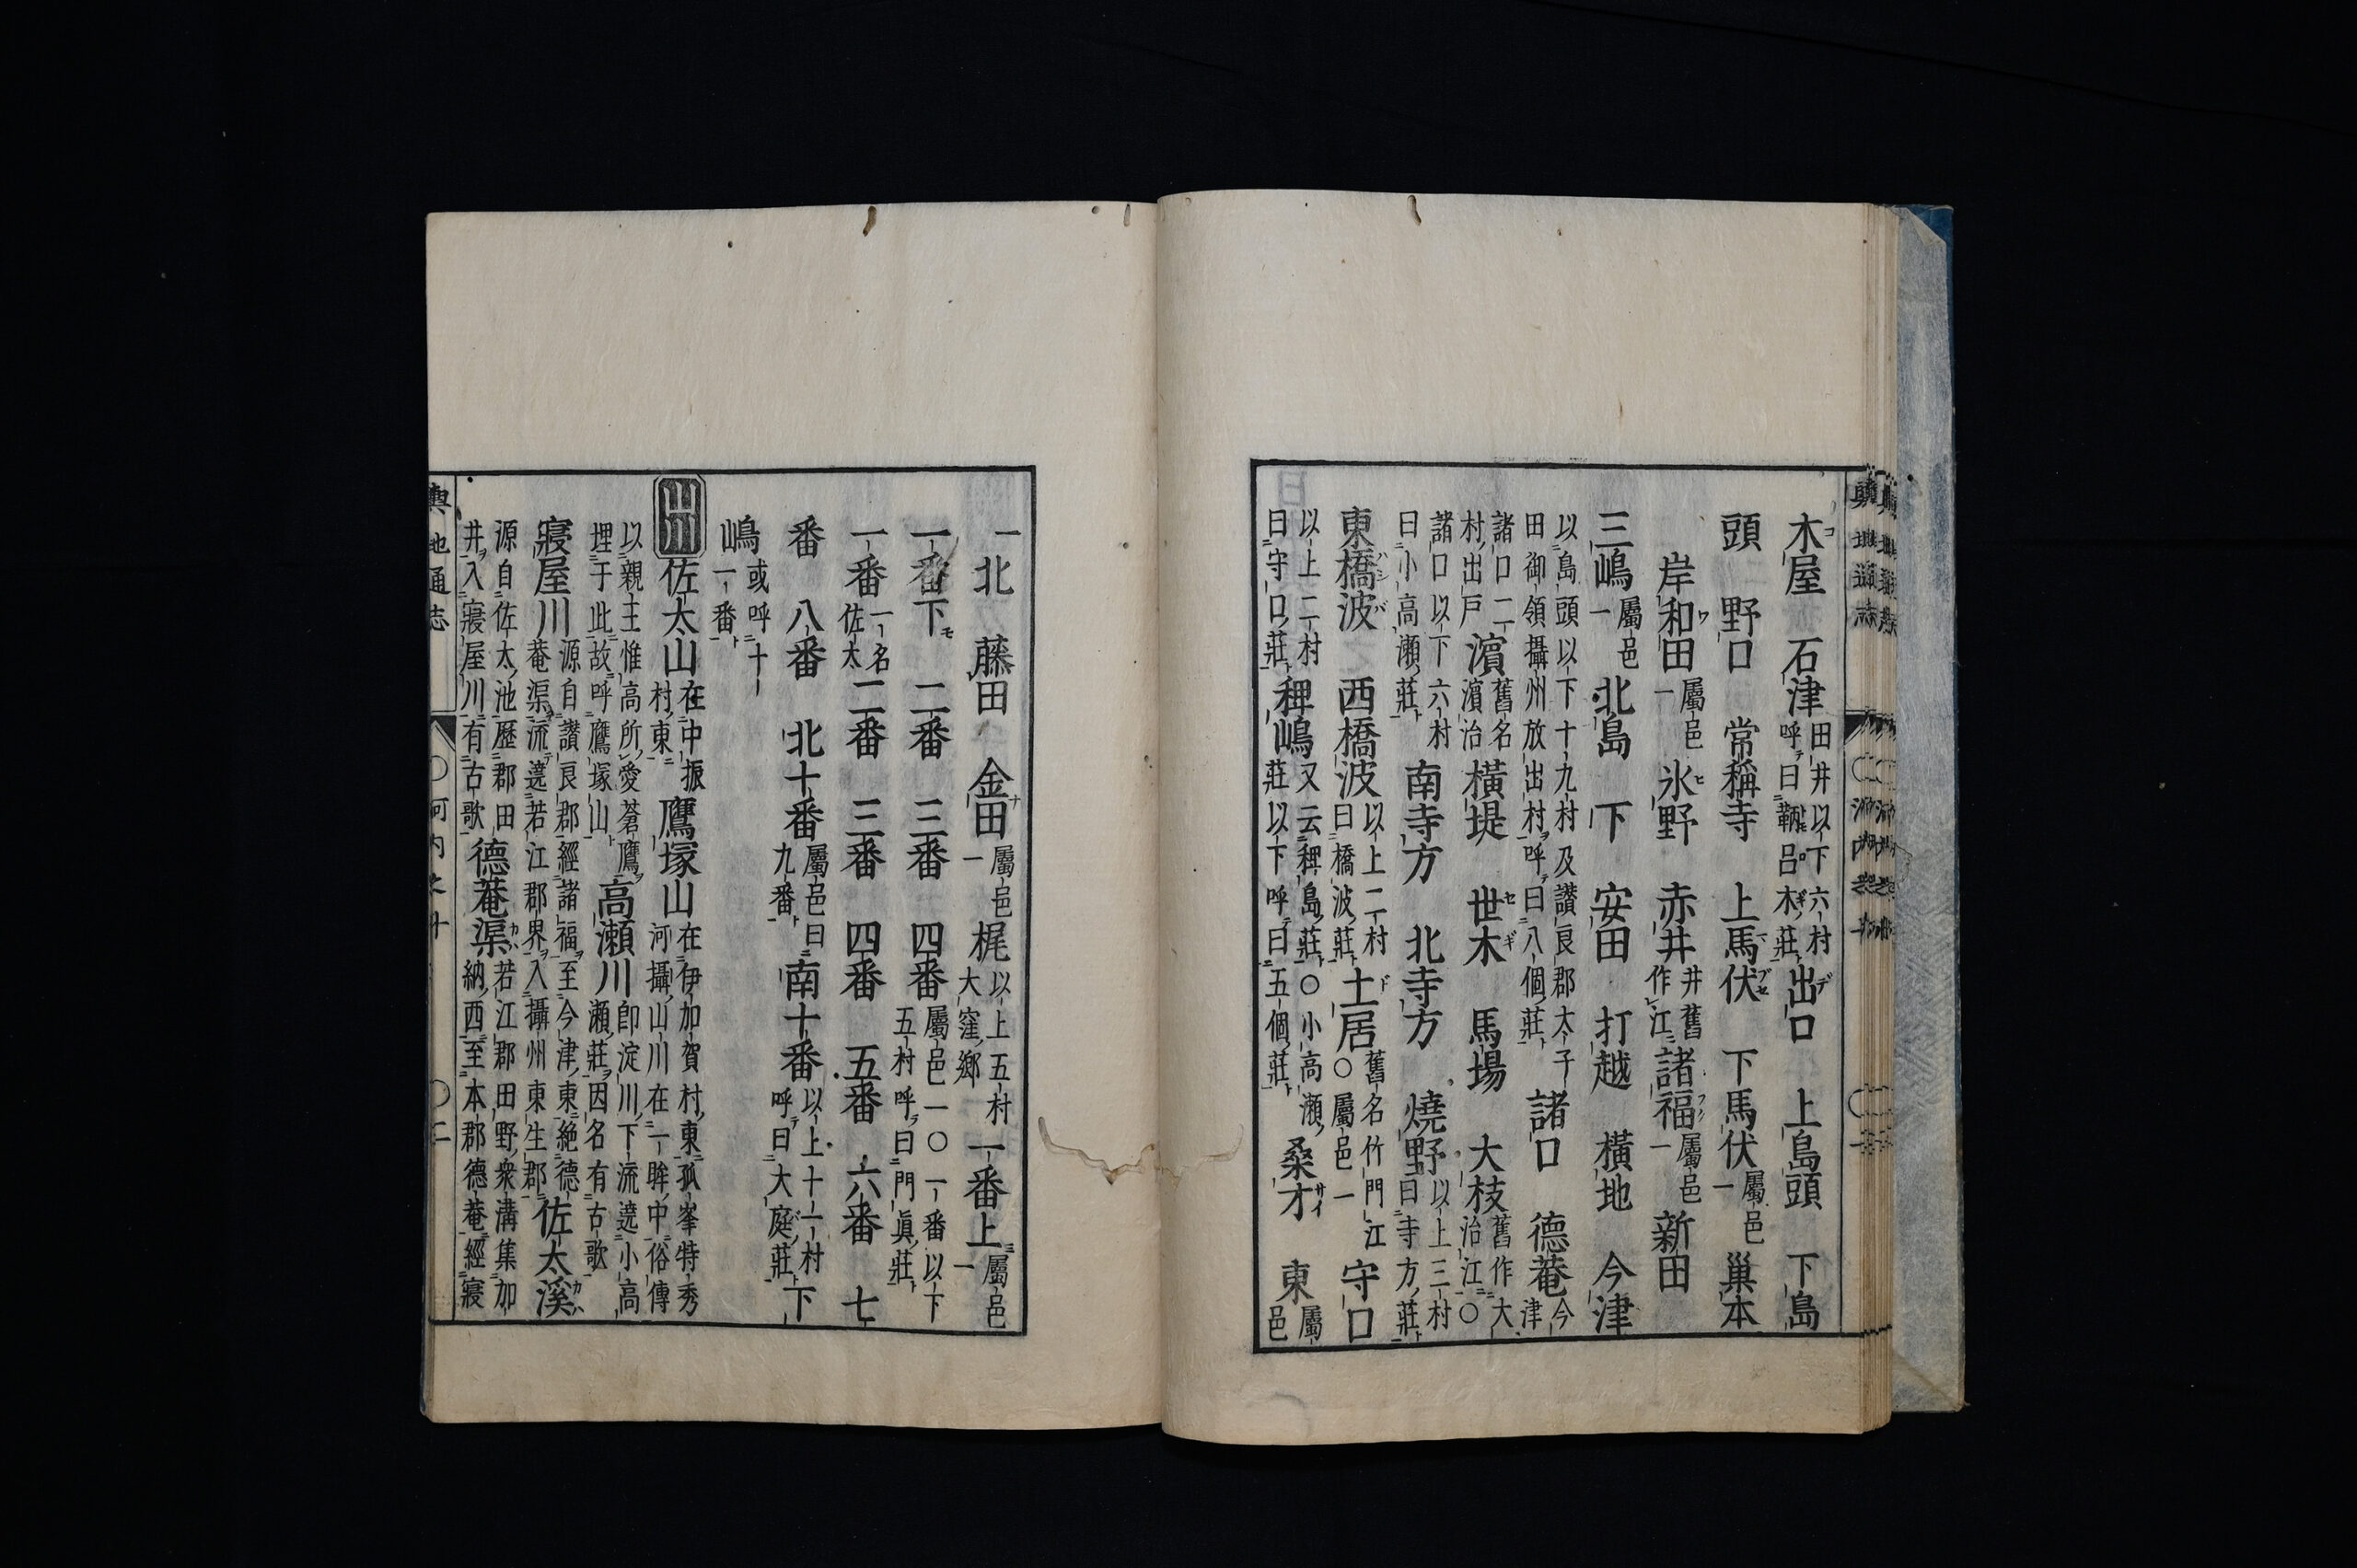 木屋 石津 田井以下六村呼曰鞆呂木莊 出口 上島頭 下島
頭 野口 常稱寺 上馬伏 下馬伏 屬邑一 巢本
岸和田 屬邑一 氷野 赤井 井舊作江 諸福 屬邑一 新田
三嶋 屬邑一 北島 下 安田 打越 橫地 今津
以島頭以下十九村及讃良郡太子田御領攝州放出村呼曰八個莊 諸口 德菴 今津
諸口二村出戶 濵 舊名濵治 橫堤 世木 馬場 大枝 舊作大治江○
諸口以下六村曰小高瀨莊 南寺方 北寺方 燒野 以上三村曰寺方莊
東橋波 西橋波 以上二村曰橋波莊 土居 舊名竹門江○屬邑一 守口
以上二村曰守口莊 稗嶋 又云稗島莊○小高瀨莊以下呼曰五個莊 桑才 東 屬邑
一北 藤田 金田 屬邑一 梶 以上五村大窪鄉 一番上 屬邑一
一番下 二番 三番 四番 屬邑一○一番以下五村呼曰門眞莊
一番 一名佐太 二番 三番 四番 五番 六番 七
番 八番 北十番 屬邑曰九番 南十番 以上十一村呼曰大庭莊 下
嶋 或呼十一番
山川 佐太山 在中振村東 鷹塚山 在伊加賀村東孤峯特秀河攝山川在一眸中俗傳
以親王惟高所愛蒼鷹埋于此故呼鷹塚山 高瀨川 卽淀川下流遶小高瀨莊因名有古歌
寢屋川 源自讃良郡經諸福至今津東絶德菴渠流遶若江郡界入攝州東生郡 佐太溪
源自佐太池歷郡田井入寢屋川有古歌 德菴渠 若江郡田野衆溝集加納西至本郡德菴經寢
輿地通志 ○河內之十 ○二